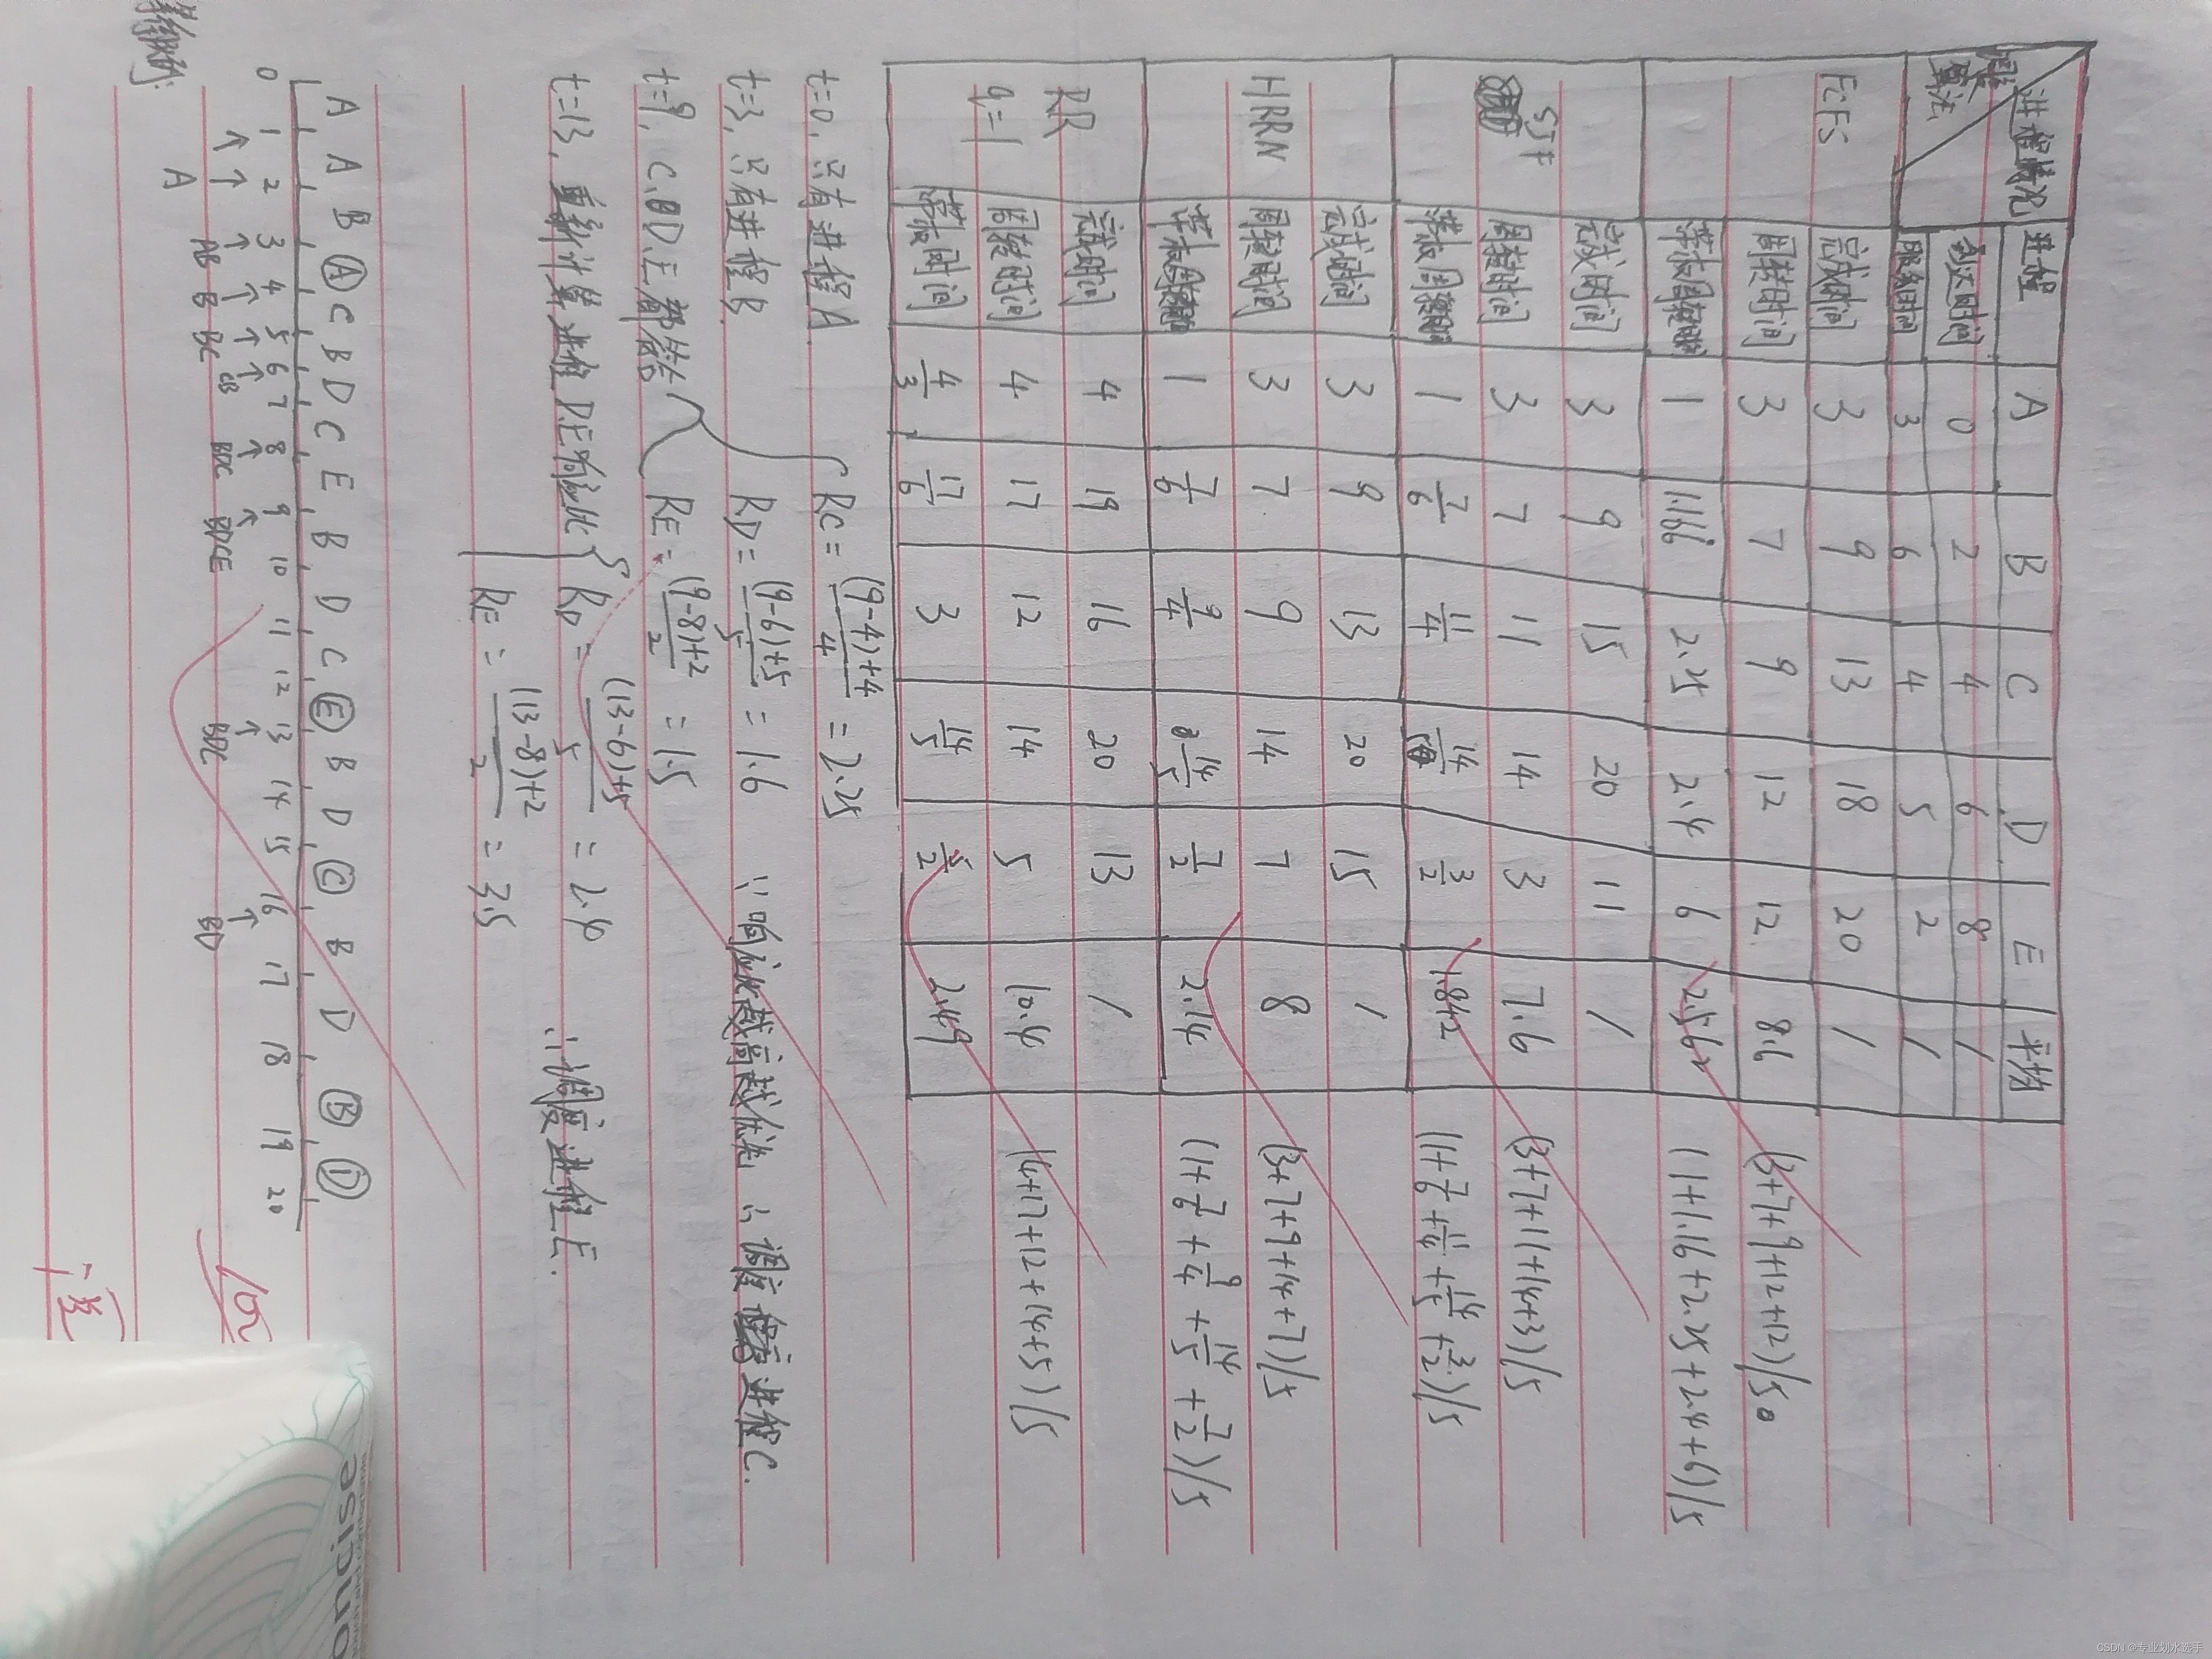 进程情况 调度算法 进程 A B C D E 平均
到达时间 0 2 4 6 8 /
服务时间 3 6 4 5 2 /
FCFS 完成时间 3 9 13 18 20 /
周转时间 3 7 9 12 12 8.6 (3+7+9+12+12)/5
带权周转时间 1 1.16 2.25 2.4 6 2.562 (1+1.16+2.25+2.4+6)/5
SJF 完成时间 3 9 15 20 11 /
周转时间 3 7 11 14 3 7.6 (3+7+11+14+3)/5
带权周转时间 1 7/6 11/4 14/5 3/2 1.842 (1+7/6+11/4+14/5+3/2)/5
HRRN 完成时间 3 9 13 20 15 /
周转时间 3 7 9 14 7 8 (3+7+9+14+7)/5
带权周转时间 1 7/6 9/4 14/5 7/2 2.14 (1+7/6+9/4+14/5+7/2)/5
RR q=1 完成时间 4 19 16 20 13 /
周转时间 4 17 12 14 5 10.4 (4+17+12+14+5)/5
带权时间 4/3 17/6 3 14/5 5/2 2.49
t=0, 只有进程A. RC=((9-4)+4)/4=2.25
t=3, 只有进程B. RD=((9-6)+5)/5=1.6 ∵响应比越高越优先 ∴调度进程C.
t=9, C.D.E都等待 RE=((9-8)+2)/2=1.5
t=13, 重新计算进程D.E响应比 RD=((13-6)+5)/5=2.4 ∴调度进程E.
RE=((13-8)+2)/2=3.5
A A B A C B D C E B D C E B D C B D B D
0 1 2 3 4 5 6 7 8 9 10 11 12 13 14 15 16 17 18 19 20
A AB B BC CB BDC BDCE BDC BD